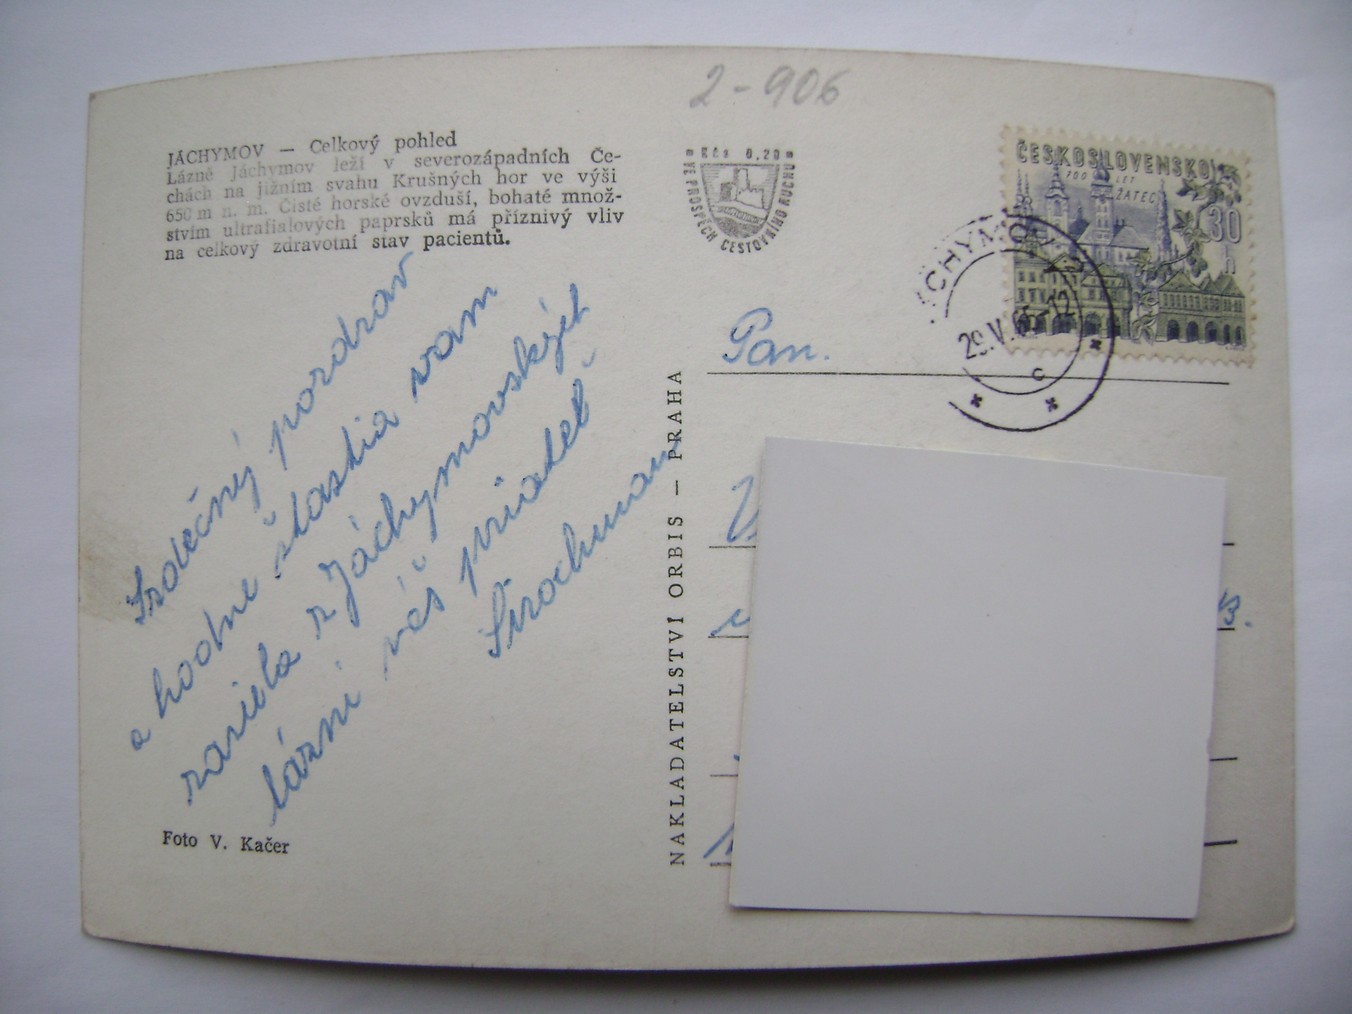 2-906
JÁCHYMOV — Celkový pohled
Lázně Jáchymov leží v severozápadních Če-
chách na jižním svahu Krušných hor ve výši
650 m n. m. Čisté horské ovzduší, bohaté množ-
stvím ultrafialových paprsků má příznivý vliv
na celkový zdravotní stav pacientů.
Srdečný pozdrav
a hodne štastia vam
zasiela z Jáchymovských
lázní váš priatel
Foto V. Kačer
NAKLADATELSTVÍ ORBIS — PRAHA
Kčs 0,20
VE PROSPĚCH CESTOVNÍHO RUCHU
ČESKOSLOVENSKO
700 LET
ŽATEC
30
h
JÁCHYMOV
29.V. 12
C
Pan.